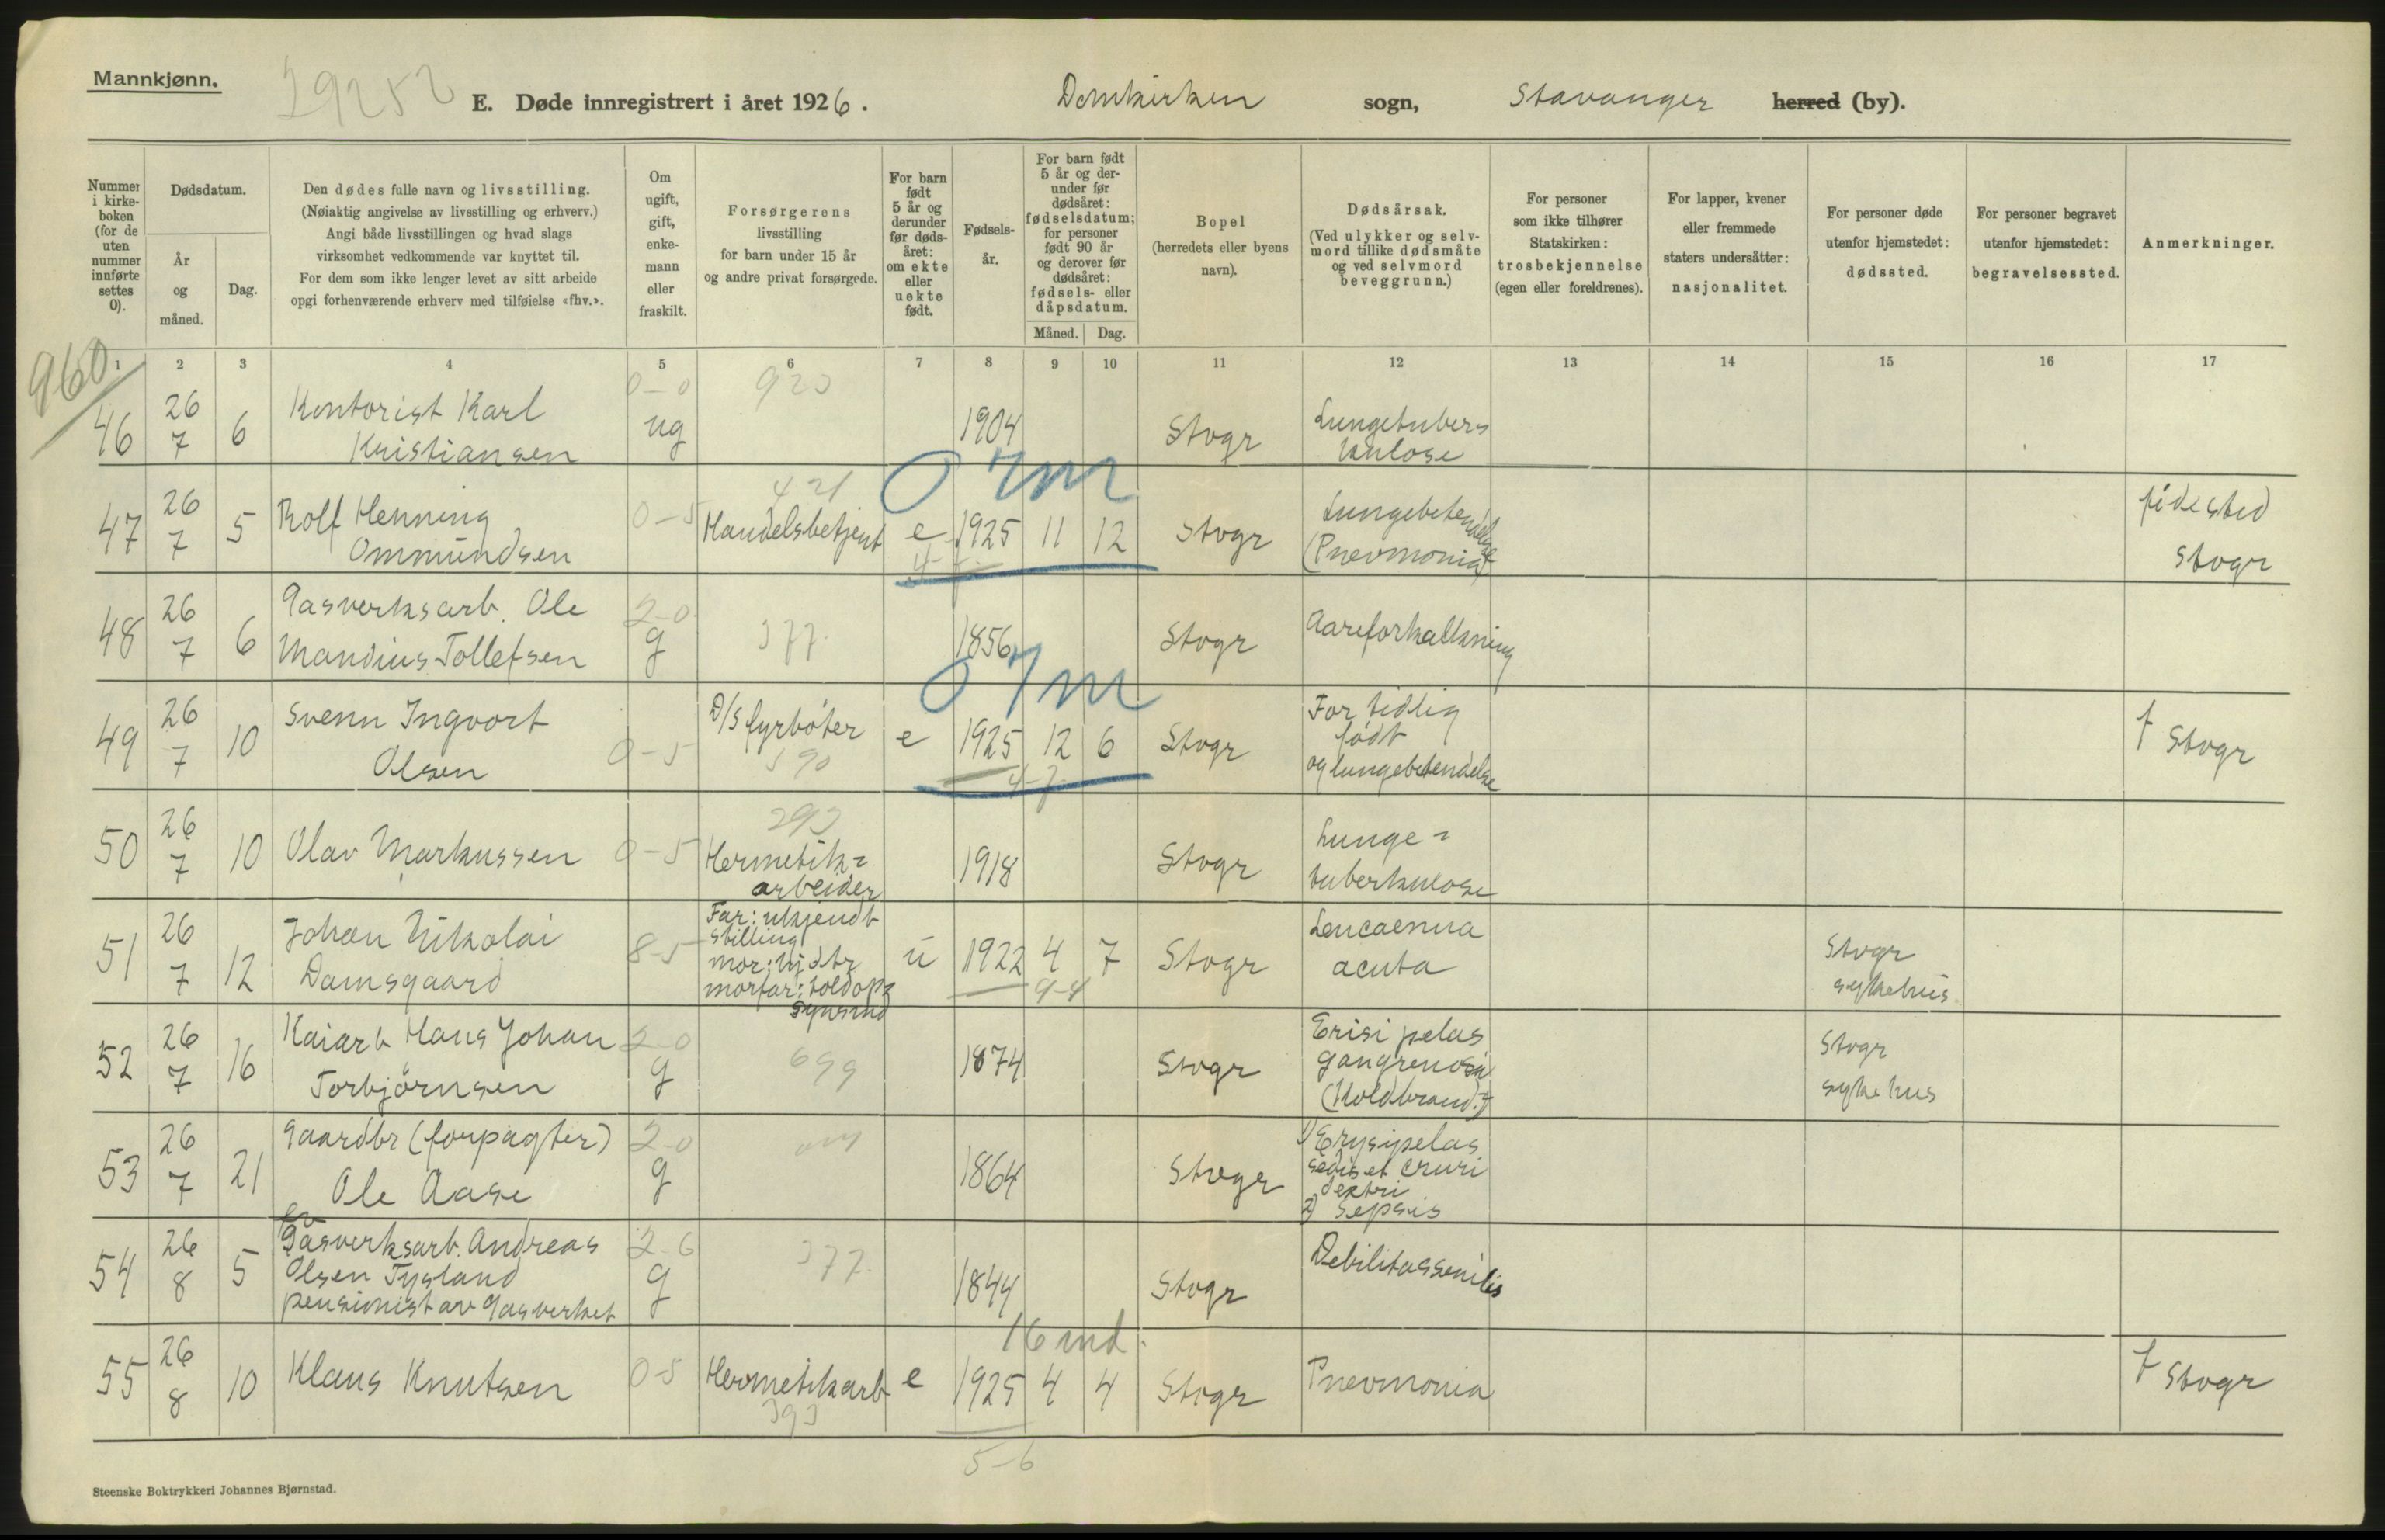 Mannkjønn.
29252
E. Døde innregistrert i året 1926.
Domkirken sogn, Stavanger herred (by).
Nummer i kirkeboken (for de uten nummer innførte settes 0).
Dødsdatum.
År og måned.
Dag.
Den dødes fulle navn og livsstilling.
(Nøiaktig angivelse av livsstilling og erhverv.)
Angi både livsstillingen og hvad slags
virksomhet vedkommende var knyttet til.
For dem som ikke lenger levet av sitt arbeide
opgi forhenværende erhverv med tilføielse «fhv.».
Om ugift, gift, enkemann eller fraskilt.
Forsørgerens
livsstilling
for barn under 15 år
og andre privat forsørgede.
For barn født 5 år og derunder før dødsåret: om ekte eller uekte født.
Fødselsår.
For barn født 5 år og derunder før dødsåret: fødselsdatum; for personer født 90 år og derover før dødsåret: fødsels- eller dåpsdatum.
Måned. Dag.
Bopel
(herredets eller byens
navn).
Dødsårsak.
(Ved ulykker og selvmord tillike dødsmåte og ved selvmord beveggrunn.)
For personer
som ikke tilhører
Statskirken:
trosbekjennelse
(egen eller foreldrenes).
For lapper, kvener
eller fremmede
staters undersåtter:
nasjonalitet.
For personer døde
utenfor hjemstedet:
dødssted.
For personer begravet
utenfor hjemstedet:
begravelsessted.
Anmerkninger.
1 2 3 4 5 6 7 8 9 10 11 12 13 14 15 16 17
960
46 26 7 6 Kontorist Karl Kristiansen 0-0 ug 920 1904 Stvgr Lungetuberkulose
0 7m
47 26 7 5 Rolf Henning Ommundsen 0-5 421 Handelsbetjent e 1925 11 12 Stvgr Lungebetendelse (Pnevmonia) födested Stvgr
48 26 7 6 Gasverksarb. Ole Mandius Tollefsen 2-0 g 377. 1856 Stvgr Aareforkalkning
0 7m
49 26 7 10 Svenn Ingvort Olsen 0-5 D/S fyrböter 590 e 1925 12 6 4-7 Stvgr For tidlig födt og lungebetendelse f Stvgr
50 26 7 10 Olav Markussen 0-5 293 Hermetik=arbeider 1918 Stvgr Lunge=tuberkulose
51 26 7 12 Johan Nikolai Damsgaard 8-5 Far: ukjendt stilling mor: Hj dtr morfar: toldop= synsmd u 1922 4 7 9-4 Stvgr Leucaemia acuta Stvgr sykehus
52 26 7 16 Kaiarb Hans Johan Torbjörnsen 2-0 g 699 1874 Stvgr Erisipelas gangrenosa (Koldbrand.) Stvgr sykehus
53 26 7 21 Gaardbr (forpagter) Ole Aase 2-0 g 1864 Stvgr 1) Erysipelas sedis et cruri dextri 2) Sepsis
54 26 8 5 Gasverksarb. Andreas Olsen Tysland pensionist av Gasverket 2-6 g 377. 1844 Stvgr Debilitas senilis
16 md.
55 26 8 10 Klaus Knutsen 0-5 Hermetikarb 393 e 1925 4 4 Stvgr Pnevmonia f Stvgr
5-6
Steenske Boktrykkeri Johannes Bjørnstad.